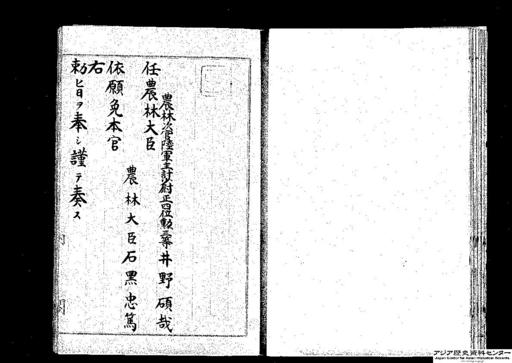 農林次官陸軍主計尉正四位勲三等井野碩哉
任農林大臣
農林大臣石黒忠篤
依願免本官
右
勅旨ヲ奉シ謹テ奏ス
内閣
アジア歴史資料センター
Japan Center for Asian Historical Records